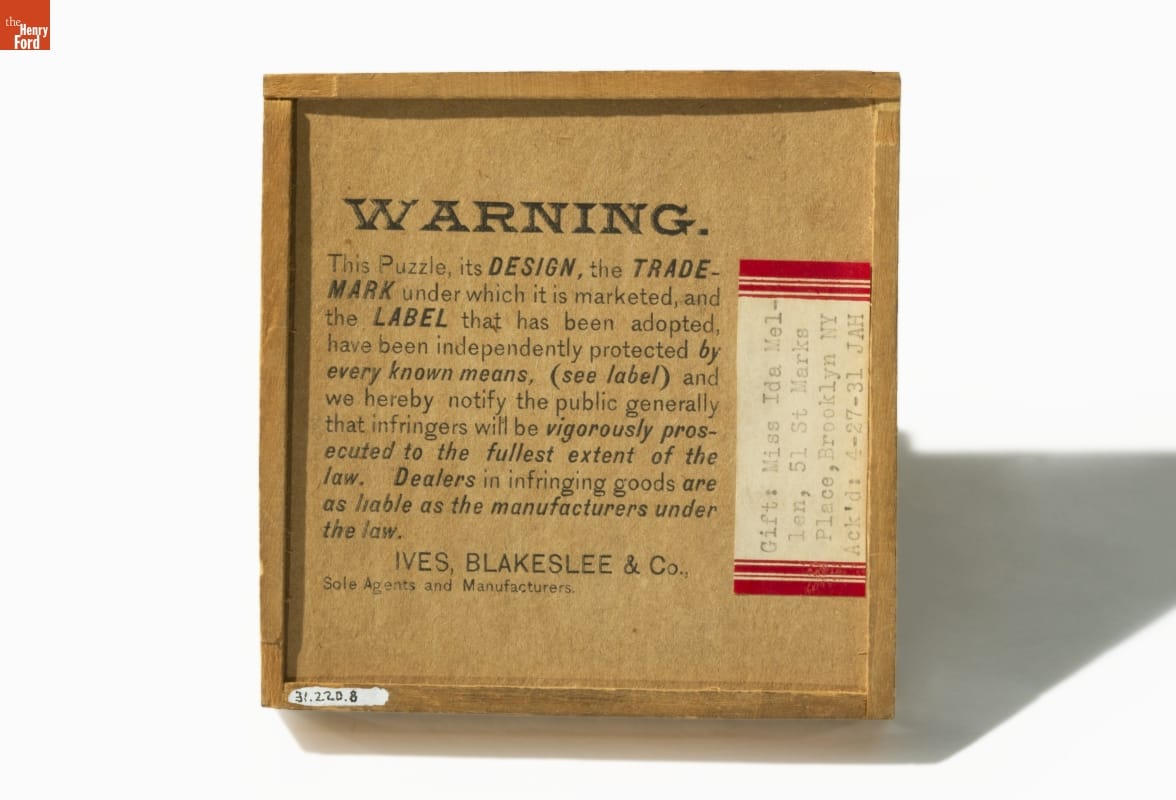 the
Henry
Ford
WARNING.
This Puzzle, its DESIGN, the TRADE-
MARK under which it is marketed, and
the LABEL that has been adopted,
have been independently protected by
every known means, (see label) and
we hereby notify the public generally
that infringers will be vigorously pros-
ecuted to the fullest extent of the
law. Dealers in infringing goods are
as liable as the manufacturers under
the law.
IVES, BLAKESLEE & Co.,
Sole Agents and Manufacturers.
Gift: Miss Ida Mel-
len, 51 St Marks
Place, Brooklyn NY
Ack'd: 4-27-31 JAH
31.220.8